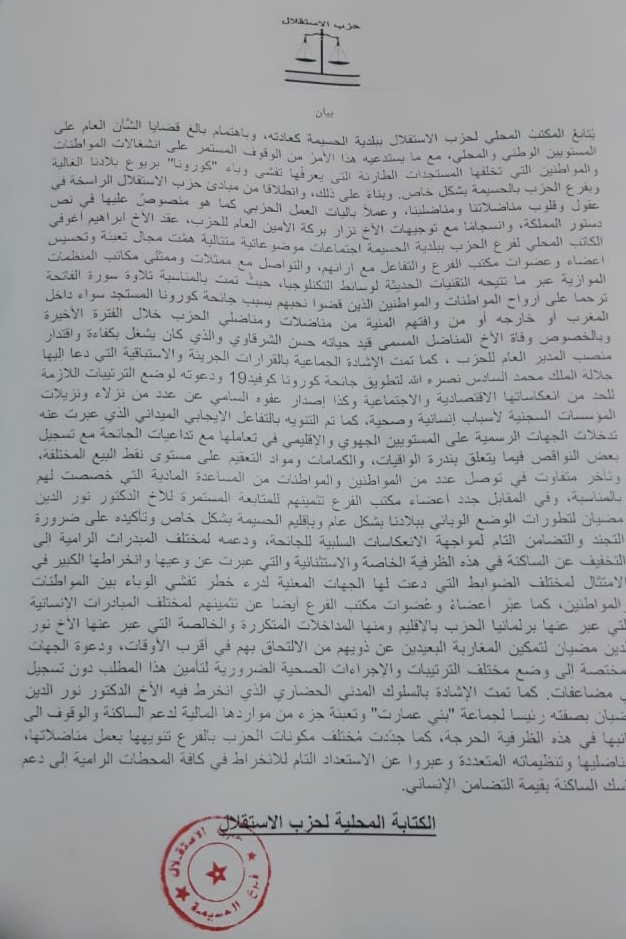 حزب الاستقلال
بيان
يُتابعُ المكتبُ المحلي لحزب الاستقلال ببلدية الحسيمة كعادته، وباهتمام بالغ قضايا الشأن العام على
المستويين الوطني والمحلي، مع ما يستدعيه هذا الأمرُ من الوقوف المستمر على انشغالات المواطنات
والمواطنين التي تخلقها المستجدات الطارئة التي يعرفها تفشي وباء "كورونا" بربوع بلادنا الغالية
وبفرع الحزب بالحسيمة بشكل خاص. وبناءً على ذلك، وانطلاقا من مبادئ حزب الاستقلال الراسخة في
عقول وقلوب مناضلاتنا ومناضلينا، وعملاً باليات العمل الحزبي كما هو منصوصٌ عليها في نص
دستور المملكة، وانسجامًا مع توجيهات الأخ نزار بركة الأمين العام للحزب، عقد الأخ ابراهيم أغوفي
الكاتب المحلي لفرع الحزب ببلدية الحسيمة اجتماعات موضوعاتية متتالية همّت مجال تعبئة وتحسيس
اعضاء وعضوات مكتب الفرع والتفاعل مع ارائهم، والتواصل مع ممثلات وممثلي مكاتب المنظمات
الموازية عبر ما تتيحه التقنيات الحديثة لوسائط التكنلوجيا، حيثُ تمت بالمناسبة تلاوة سورة الفاتحة
ترحما على أرواح المواطنات والمواطنين الذين قضوا نحبهم بسبب جائحة كورونا المستجد سواء داخل
المغرب أو خارجه أو من وافتهم المنية من مناضلات ومناضلي الحزب خلال الفترة الأخيرة
وبالخصوص وفاة الأخ المناضل المسمى قيد حياته حسن الشرقاوي والذي كان يشغل بكفاءة واقتدار
منصب المدير العام للحزب ، كما تمت الإشادة الجماعية بالقرارات الجريئة والاستباقية التي دعا اليها
جلالة الملك محمد السادس نصره الله لتطويق جائحة كورونا كوفيد19 ودعوته لوضع الترتيبات اللازمة
للحد من انعكاساتها الاقتصادية والاجتماعية وكذا إصدار عفوه السامي عن عدد من نزلاء ونزيلات
المؤسسات السجنية لأسباب إنسانية وصحية، كما تم التنويه بالتفاعل الإيجابي الميداني الذي عبرت عنه
تدخلات الجهات الرسمية على المستويين الجهوي والإقليمي في تعاملها مع تداعيات الجائحة مع تسجيل
بعض النواقص فيما يتعلق بندرة الواقيات، والكمامات ومواد التعقيم على مستوى نقط البيع المختلفة،
وتأخر متفاوت في توصل عدد من المواطنين والمواطنات من المساعدة المادية التي خصصت لهم
بالمناسبة، وفي المقابل جدد اعضاء مكتب الفرع تثمينهم للمتابعة المستمرة للاخ الدكتور نور الدين
مضيان لتطورات الوضع الوبائي ببلادنا بشكل عام وبإقليم الحسيمة بشكل خاص وتأكيده على ضرورة
التجند والتضامن التام لمواجهة الانعكاسات السلبية للجائحة، ودعمه لمختلف المبدرات الرامية إلى
التخفيف عن الساكنة في هذه الظرفية الخاصة والاستثنائية والتي عبرت عن وعيها وانخراطها الكبير في
الامتثال لمختلف الضوابط التي دعت لها الجهات المعنية لدرء خطر تفشي الوباء بين المواطنات
والمواطنين، كما عبّر أعضاءُ وعُضوات مكتب الفرع أيضا عن تثمينهم لمختلف المبادرات الإنسانية
لتي عبر عنها برلمانيا الحزب بالإقليم ومنها المداخلات المتكررة والخالصة التي عبر عنها الاخ نور
لدين مضيان لتمكين المغاربة البعيدين عن ذويهم من الالتحاق بهم في أقرب الأوقات، ودعوة الجهات
مختصة إلى وضع مختلف الترتيبات والإجراءات الصحية الضرورية لتأمين هذا المطلب دون تسجيل
ي مضاعفات. كما تمت الإشادة بالسلوك المدني الحضاري الذي انخرط فيه الأخ الدكتور نور الدين
ضيان بصفته رئيسا لجماعة "بني عمارت" وتعبئة جزء من مواردها المالية لدعم الساكنة والوقوف الى
انبها في هذه الظرفية الحرجة، كما جدّدت مُختلف مكونات الحزب بالفرع تنويهها بعمل مناضلاتها،
ناضليها وتنظيماته المتعددة وعبروا عن الاستعداد التام للانخراط في كافة المحطات الرامية إلى دعم
سك الساكنة بقيمة التضامن الإنساني.
الكتابة المحلية لحزب الاستقلال
حزب الاستقلال
فرع الحسيمة